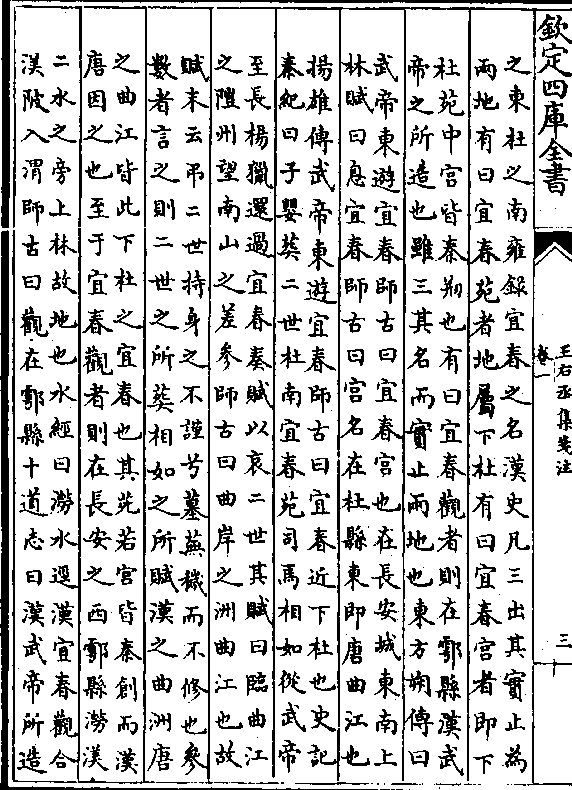 欽定四庫全書
王右丞集箋注
卷一
三
之東杜之南雍録宜春之名漢史凡三出其實止為
兩地有曰宜春苑者地屬下杜有曰宜春宮者即下
杜苑中宮皆秦剏也有曰宜春觀者則在鄠縣漢武
帝之所造也雖三其名而實止兩地也東方朔傳曰
武帝東遊宜春師古曰宜春宮也在長安城東南上
林賦曰息宜春師古曰宮名在杜縣東即唐曲江也
揚雄傳武帝東遊宜春師古曰宜春近下杜也史記
秦紀曰子嬰葬二世杜南宜春苑司馬相如從武帝
至長楊獵還過宜春奏賦以哀二世其賦曰臨曲江
之隑州望南山之差參師古曰曲岸之洲曲江也故
賦末云弔二世持身之不謹兮墓蕪穢而不修也參
數者言之則二世之所葬相如之所賦漢之曲洲唐
之曲江皆此下杜之宜春也其苑若宮皆秦創而漢
唐因之也至于宜春觀者則在長安之西鄠縣澇渼
二水之旁上林故地也水經曰澇水逕漢宜春觀合
渼陂入渭師古曰觀在鄠縣十道志曰漢武帝所造